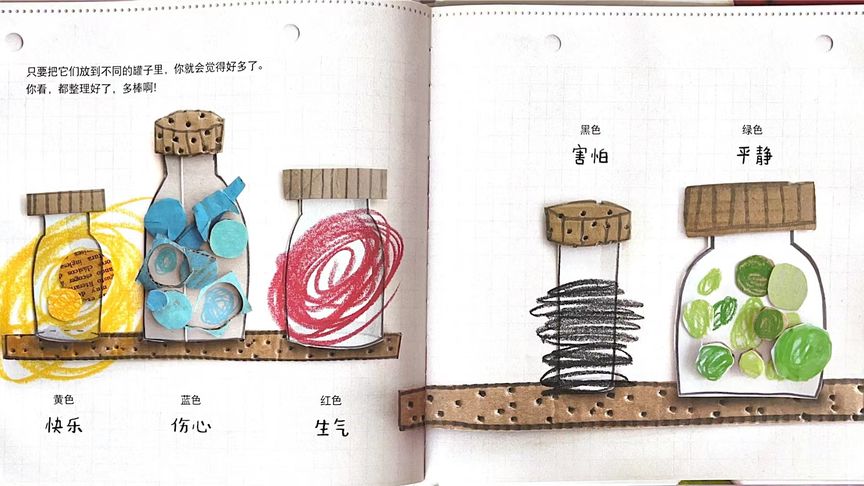 只要把它们放到不同的罐子里，你就会觉得好多了。
你看，都整理好了，多棒啊!
黄色
快乐
蓝色
伤心
红色
生气
黑色
害怕
绿色
平静